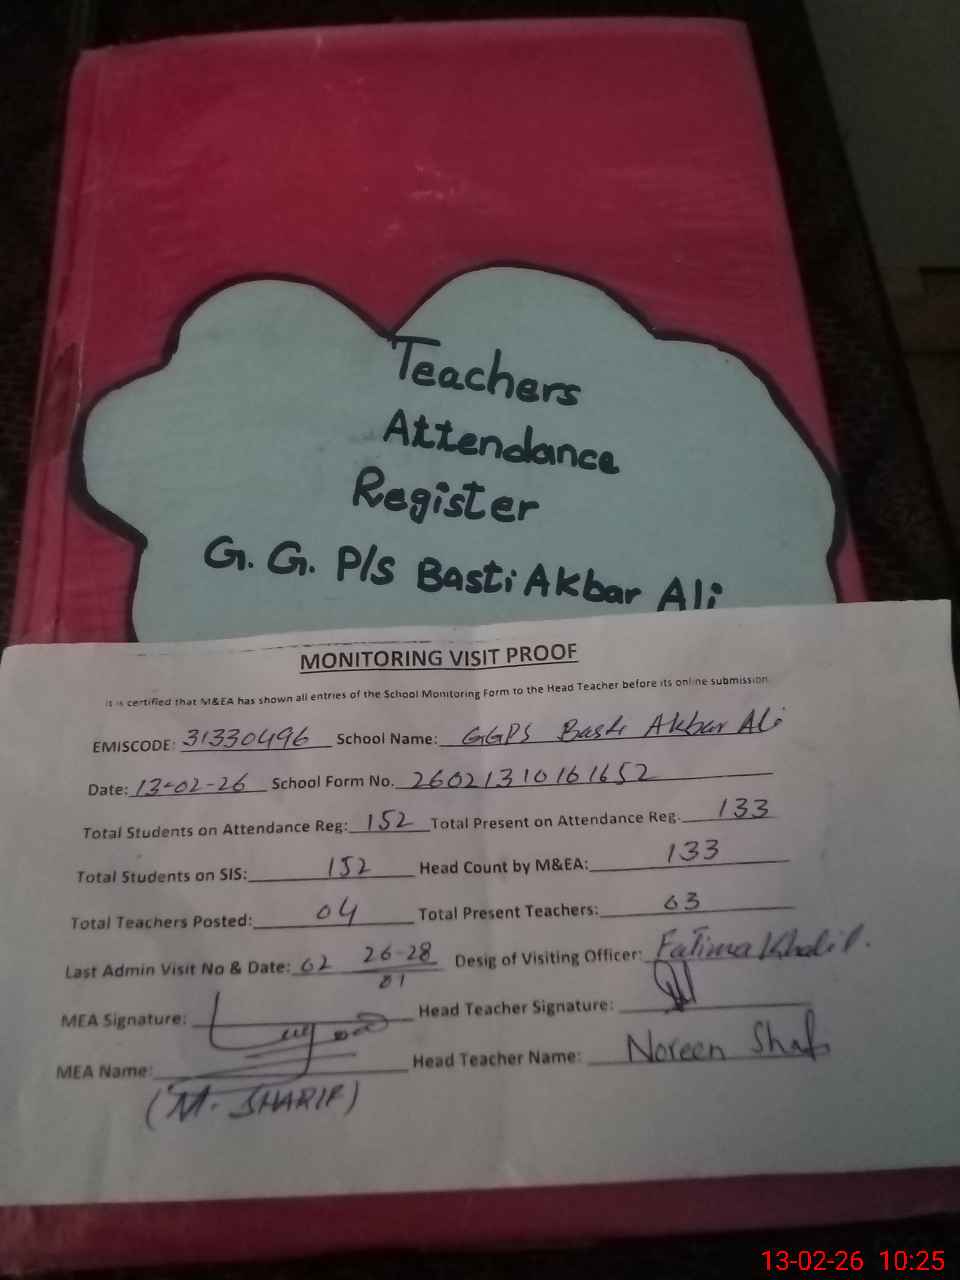 Teachers
Attendance
Register
G. G. P/S Basti Akbar Ali
MONITORING VISIT PROOF
It is certified that M&EA has shown all entries of the School Monitoring Form to the Head Teacher before its online submission.
EMISCODE: 31330496 School Name: GGPS Basti Akbar Ali
Date: 13-02-26 School Form No. 26021310161652
Total Students on Attendance Reg: 152 Total Present on Attendance Reg. 133
Total Students on SIS: 152 Head Count by M&EA: 133
Total Teachers Posted: 04 Total Present Teachers: 03
Last Admin Visit No & Date: 02 26-28/01 Desig of Visiting Officer: Fatima Khalil.
MEA Signature: Head Teacher Signature:
MEA Name: Head Teacher Name: Noreen Shafi
(M. SHARIF)
13-02-26 10:25